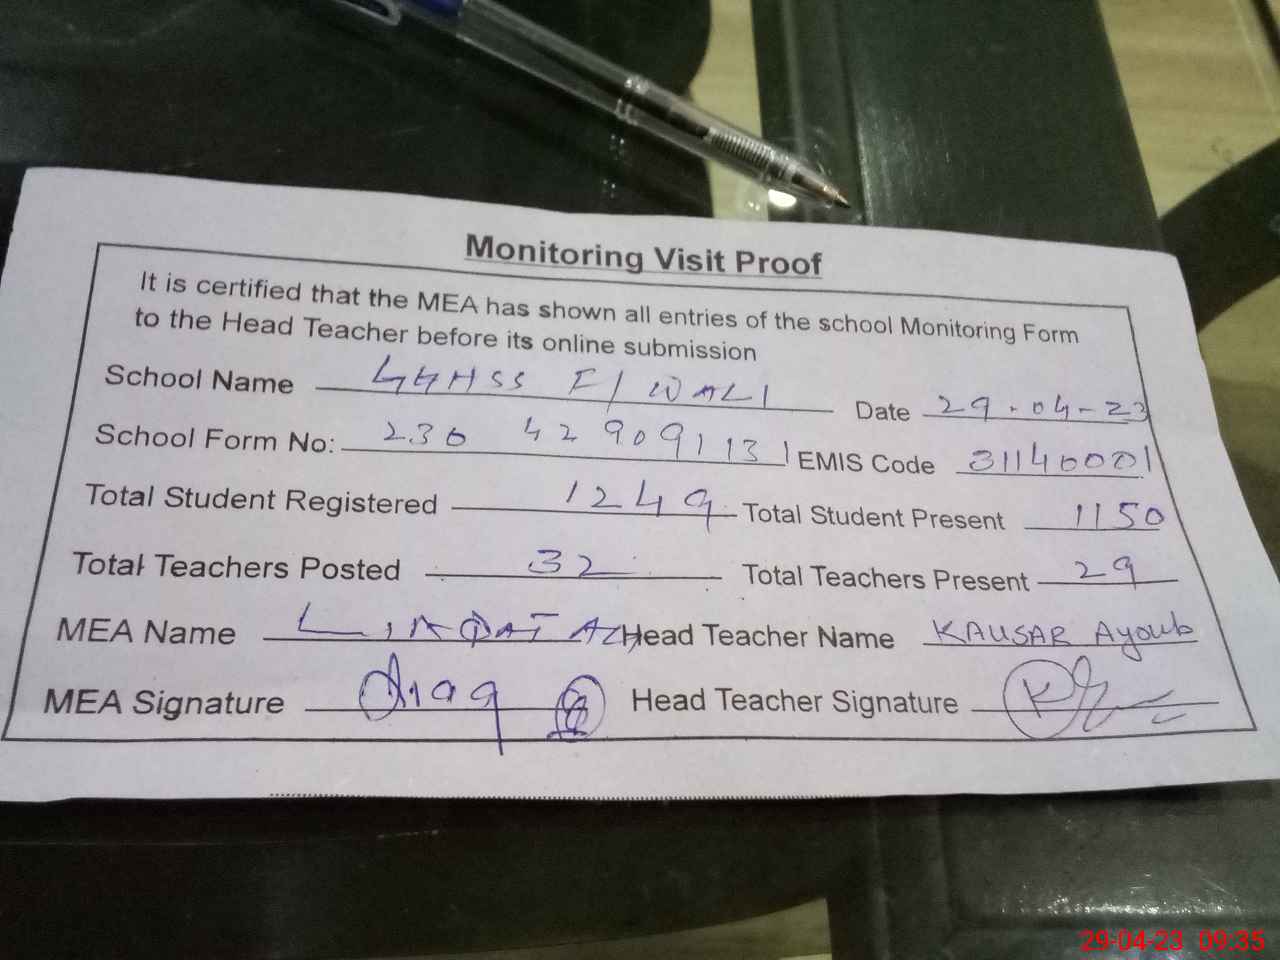 Monitoring Visit Proof
It is certified that the MEA has shown all entries of the school Monitoring Form
to the Head Teacher before its online submission
School Name GGHSS F/WALI Date 29-04-23
School Form No: 230 429091131 EMIS Code 31140001
Total Student Registered 1249 Total Student Present 1150
Total Teachers Posted 32 Total Teachers Present 29
MEA Name LIAQAT ALI Head Teacher Name KAUSAR Ayoub
MEA Signature Head Teacher Signature
29-04-23 09:35